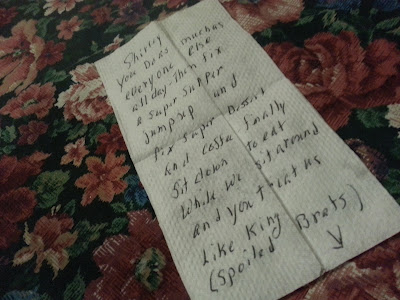 Shirley
You do as much as
everyone else
all day then fix
a super supper
jump up and
fix super Dessert
and finally
Sit down to eat
While we sit around
and you treat us
Like King
(Spoiled Brats)